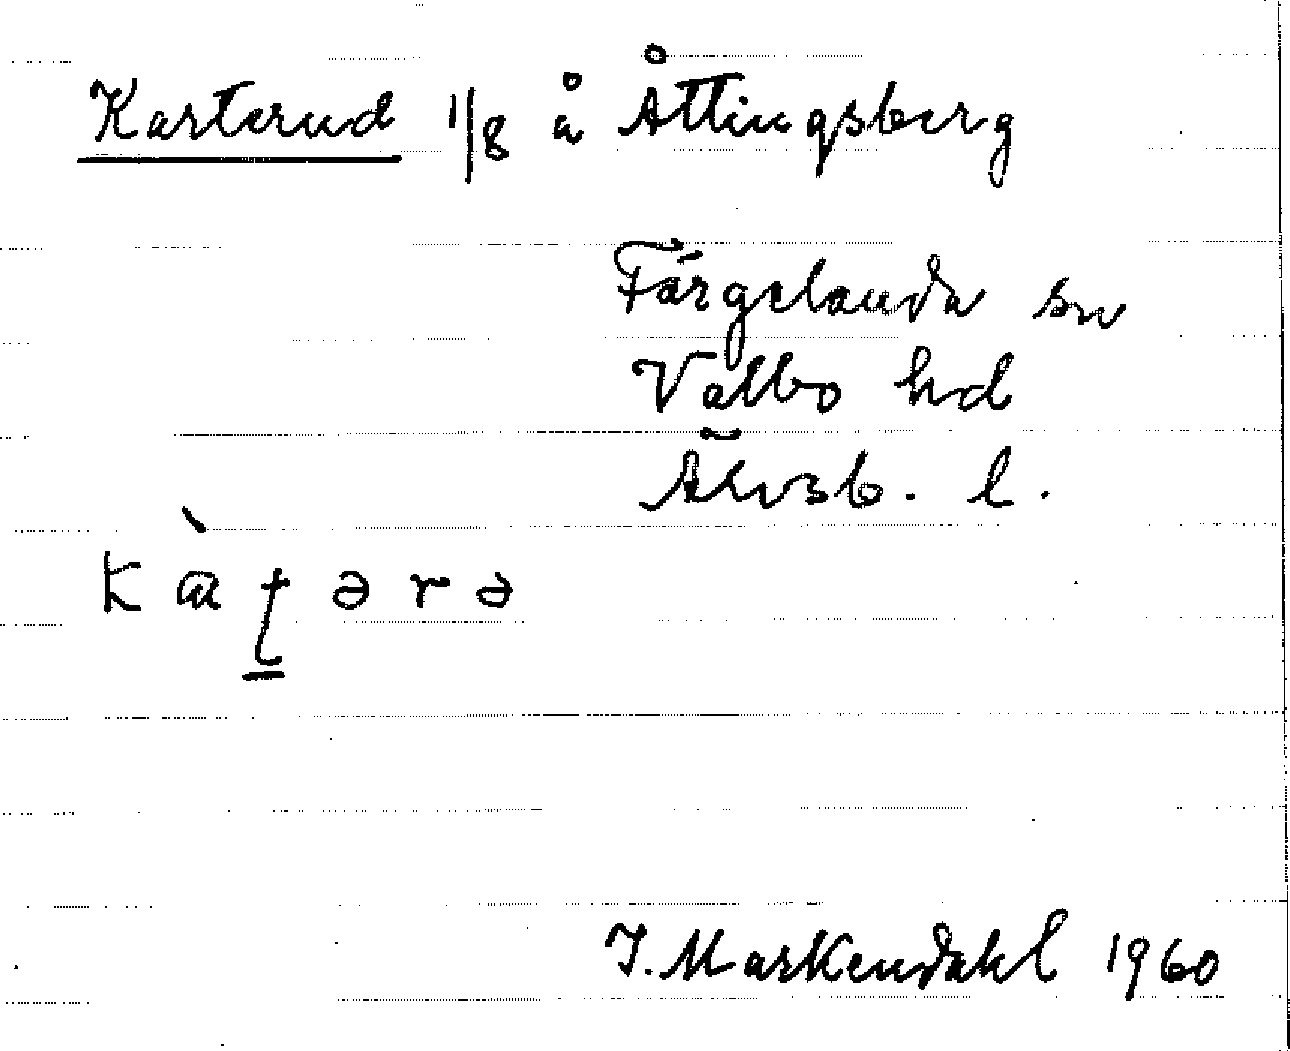 Karterud 1/8 å Åttingsberg
Färgelanda sn
Valbo hd
Älvsb. l.
kàʈərə
I. Markendahl 1960